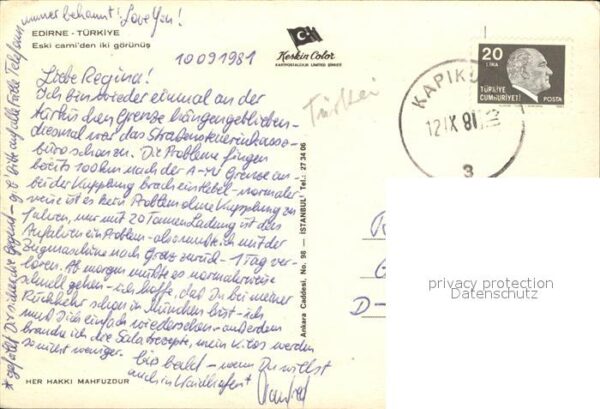 EDIRNE - TÜRKİYE
Eski cami'den iki görünüş
Keskin Color
KARTPOSTALCILIK LIMITED ŞIRKETI
10.09.1981
Liebe Regina!
Ich bin wieder einmal an der
türkischen Grenze hängengeblieben -
diesmal war das Straßensteuerinkasso-
büro schon zu. Die Probleme fingen
bereits 100 km nach der A-YU Grenze an -
bei der Kupplung brach ein Hebel - normaler
weise ist es kein Problem ohne Kupplung zu
fahren, nur mit 20 Tonnen Ladung ist das
Anfahren ein Problem - also mußte ich mit der
Zugmaschine nach Graz zurück - 1 Tag ver-
loren. Ab morgen müßte es normalerweise
schnell gehen - ich hoffe, daß Du bei meiner
Rückkehr schon in München bist - ich
muß Dich einfach wiedersehen - außerdem
brauche ich die Salatrezepte, mein Kilos werden
so nicht weniger.
bis bald - wenn Du willst
auch in Waidhofen!
Manfred
* gefällt Dir sicher die Gegend - gib bitte auf alle Fälle Telefon
nummer bekannt! Love You!
HER HAKKI MAHFUZDUR
Ankara Caddesi, No. 98 — ISTANBUL Tel.: 27 34 06
Türkei
20
LIRA
TÜRKİYE
CUMHURİYETİ
POSTA
KAPIK
12 IX 81
3
D-
privacy protection
Datenschutz